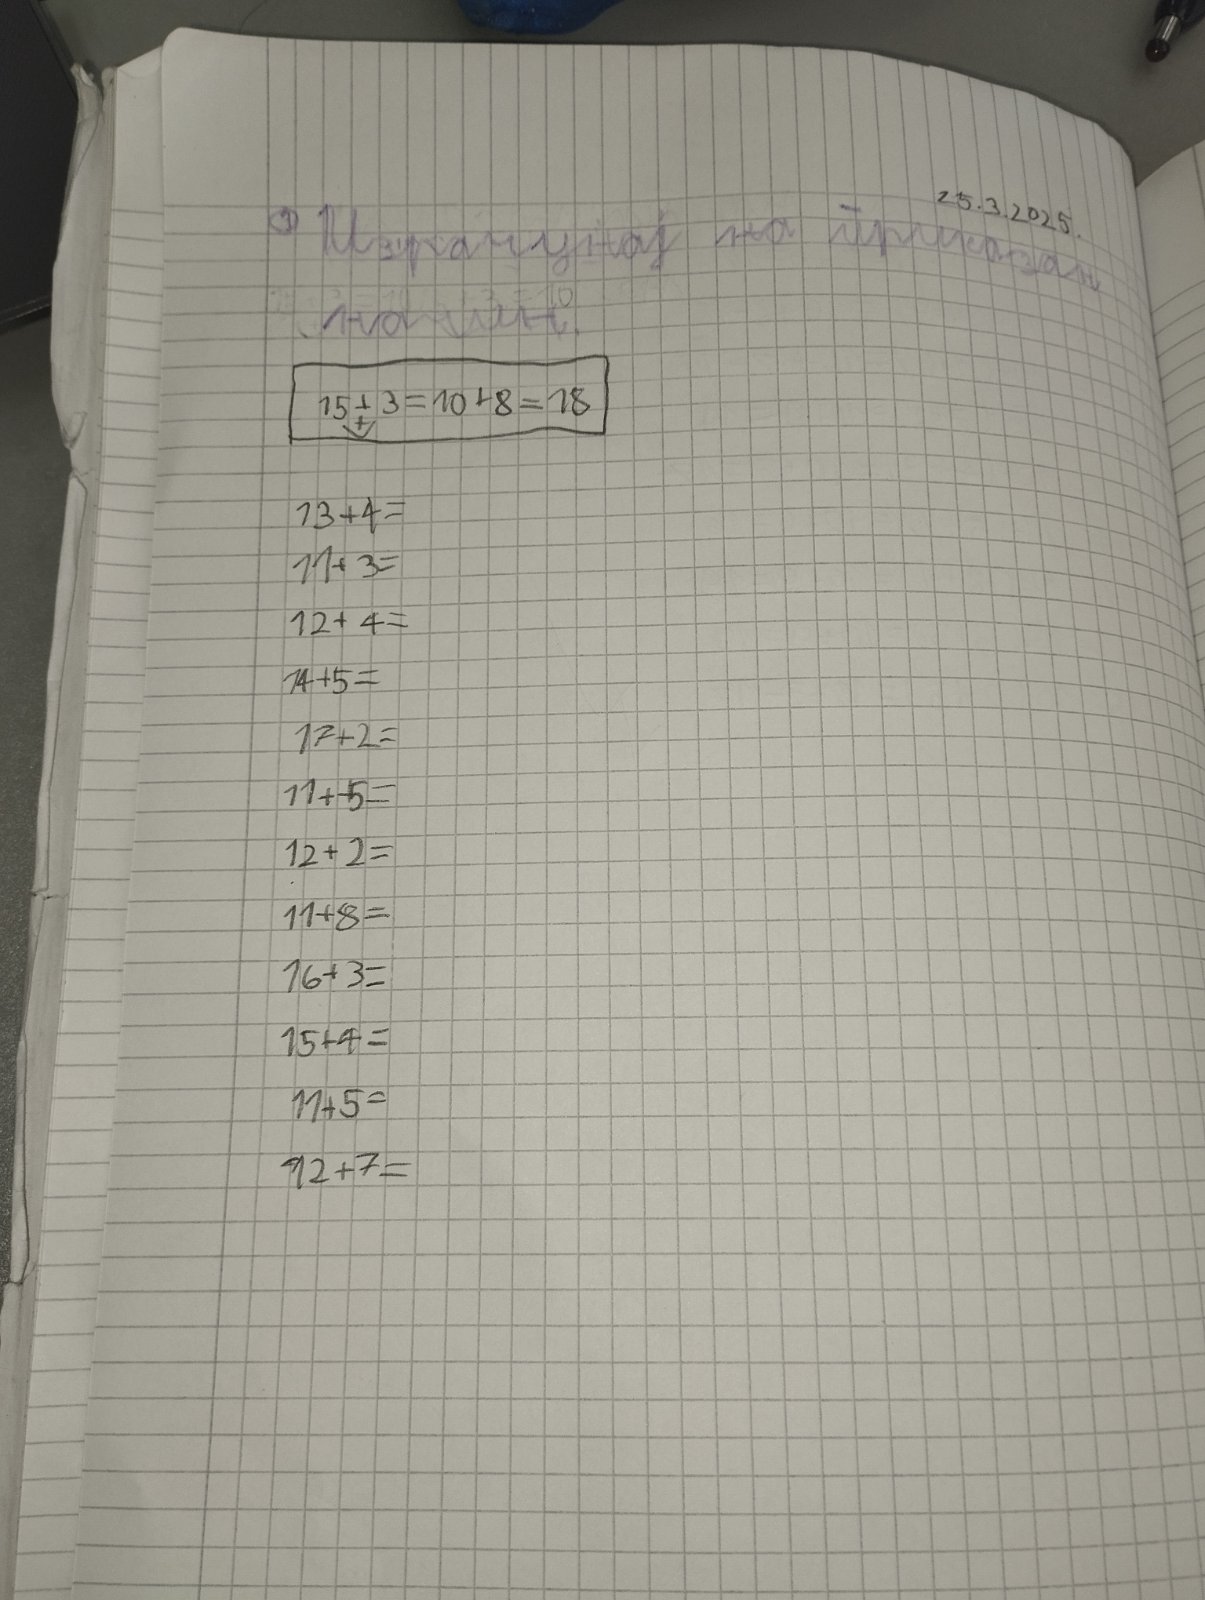 25.3.2025.
Израчунај на приказан
начин.
15+3=10+8=18
+
13+4=
11+3=
12+4=
14+5=
17+2=
11+5=
12+2=
11+8=
16+3=
15+4=
11+5=
12+7=